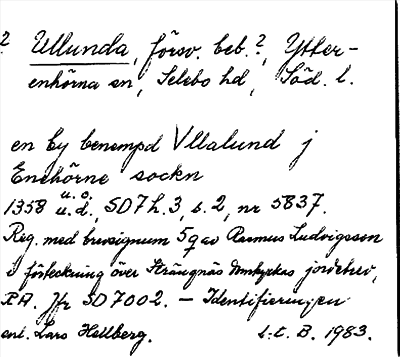 ? Ullunda, försv. beb.?, Ytter-
enhörna sn, Selebo hd, Söd. l.
en by benempd Vllalund j
Enehörne sockn
u.o.
1358 u.d., SD7h.3, s.2, nr 5837.
Reg. med brevsignum 5q av Rasmus Ludvigsson
i förteckning över Strängnäs domkyrkas jordebrev,
RA. Jfr SD7002. – Identifieringen
enl. Lars Hellberg. L.E. B. 1983.